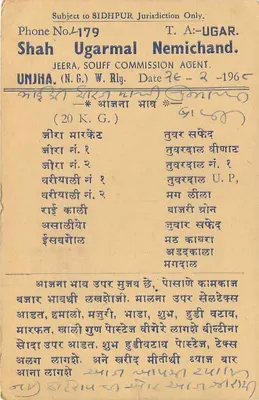 Subject to SIDHPUR Jurisdiction Only.
Phone No. 179 T. A:- UGAR.
Shah Ugarmal Nemichand.
JEERA, SOUFF COMMISSION AGENT.
UNJHA. (N. G.) W. Rly. Date 26-2-196
आजना भाव
(20 K. G.)
जीरा मारकेट तुवर सफेद
जीरा नं. १ तुवरदाल वीणाट
जीरा नं. २ तुवरदाल नं. १
वरीयाली नं. १ तुवरदाल U. P,
वरीयाली नं. २ मग लीला
राई काली बाजरी ग्रीन
असालीया जुवार सफेद
ईसबगोल मठ काबरा
अडदकाला
मगदाल
आजना भाव उपर मुजब छे. पेसाणे कामकाज
बजार भावथी लखशोजी. मालना उपर सेलटेक्ष
आडत, हमालो, मजुरी, भाडा, शुभ, हुडी वटाव,
मारफत, खाली गुण पोस्टेज वीगेरे लागशे बील्टीना
सोदा उपर आडत, शुभ हुडीवटाव पोस्टेज, टेक्ष
अलग लागशे. अने खरीद मीतीथी ब्याज बार
आना लागशे